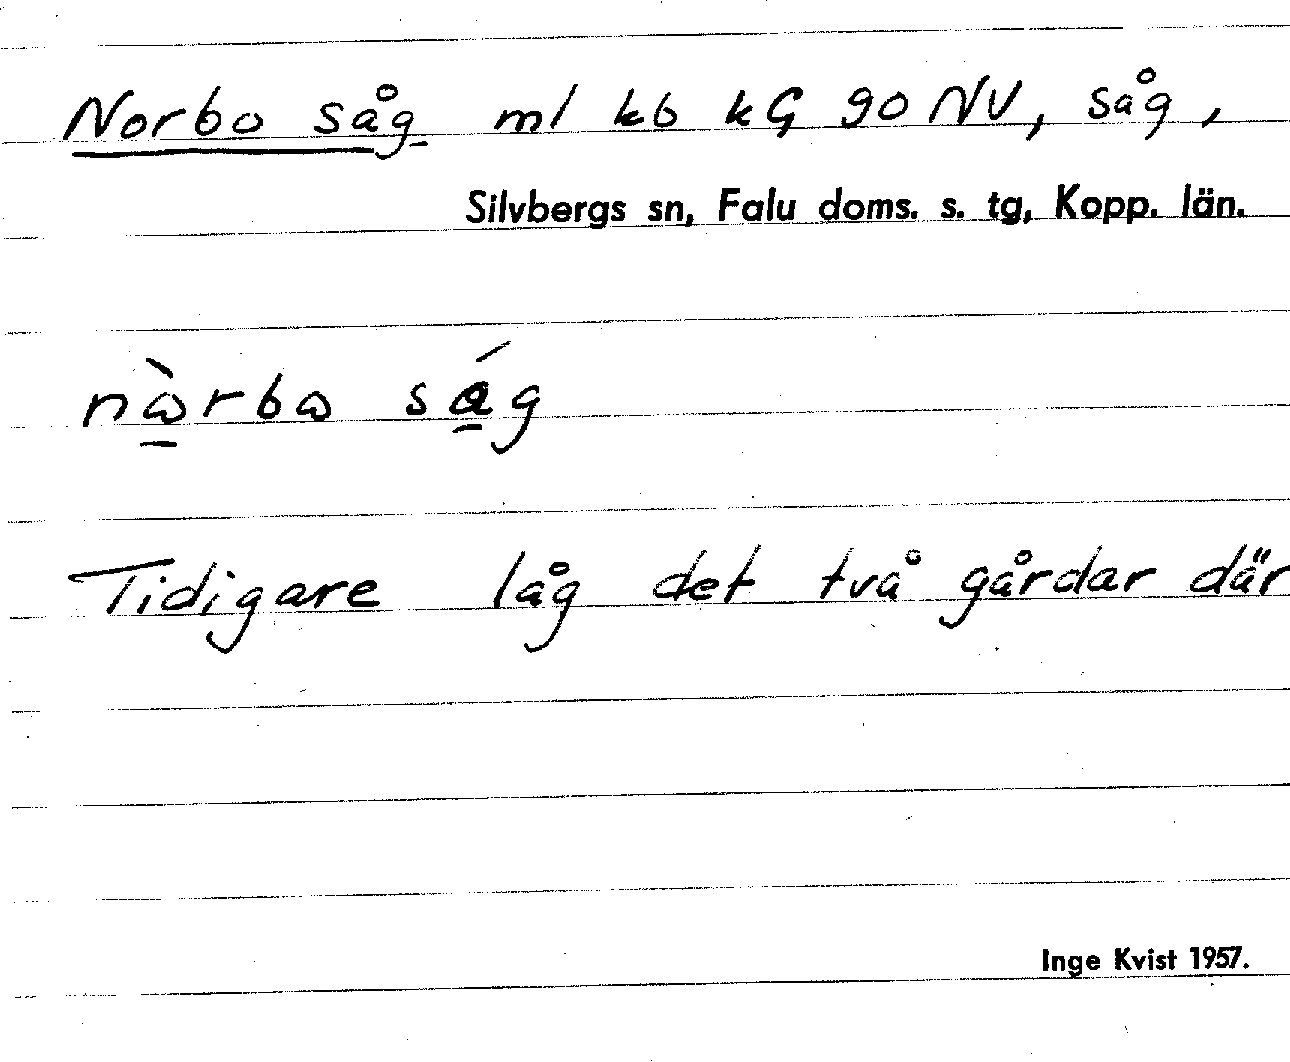 Norbo såg ml kb kG 90 NV, såg,
Silvbergs sn, Falu doms. s. tg, Kopp. län.
nὼ̠rbω sá̠g
Tidigare låg det två gårdar där
Inge Kvist 1957.